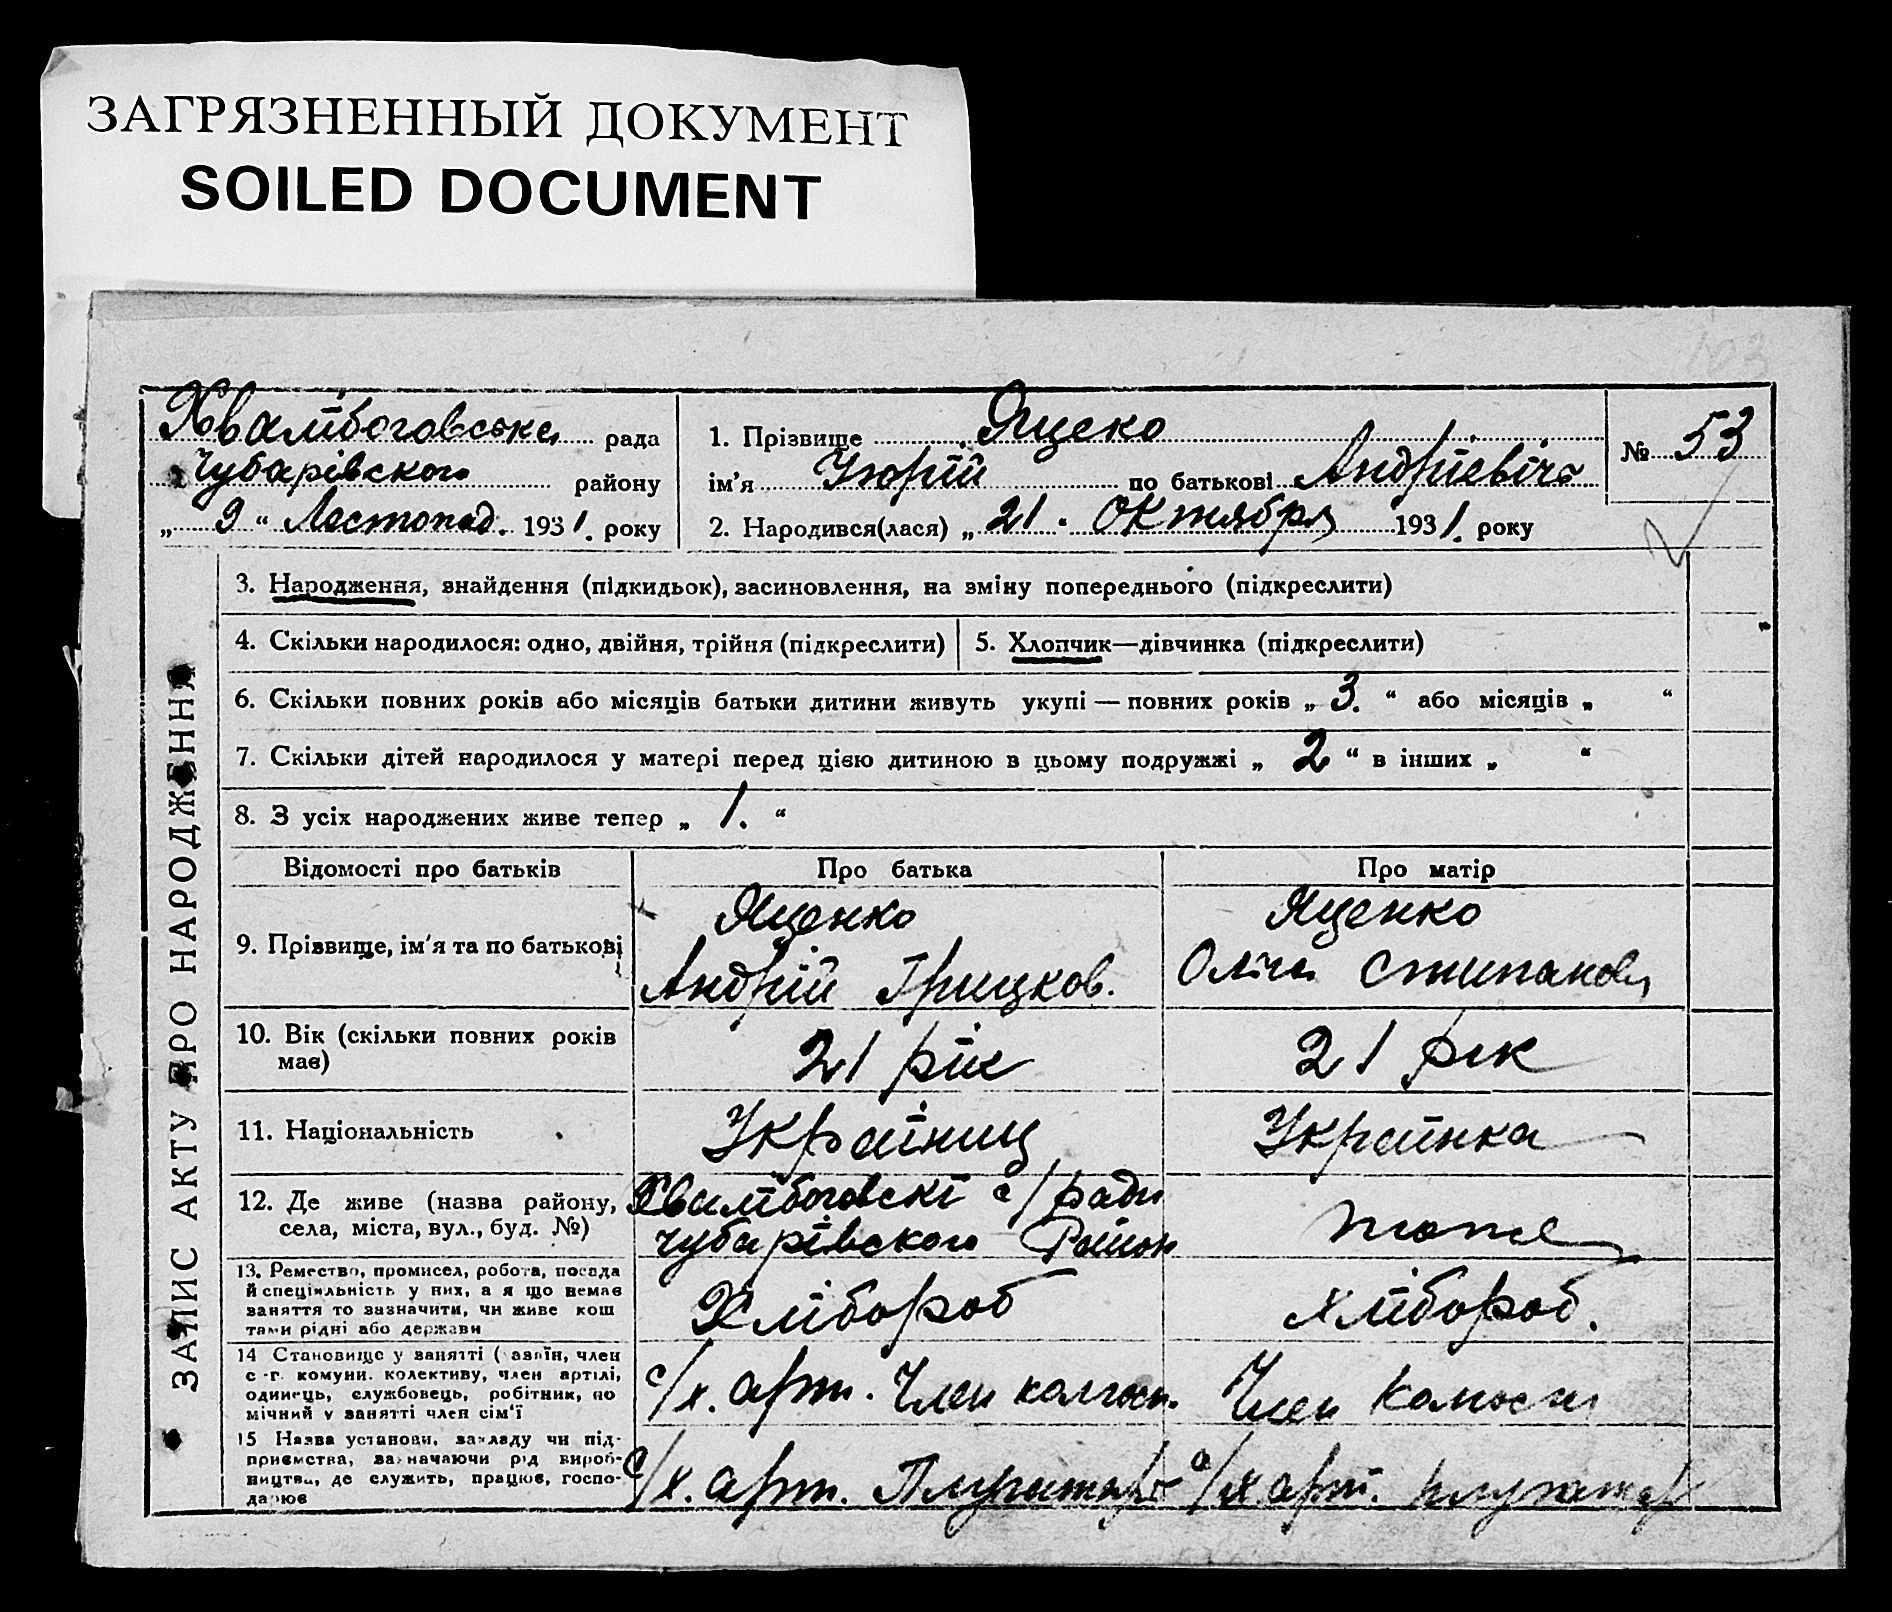 ЗАГРЯЗНЕННЫЙ ДОКУМЕНТ
SOILED DOCUMENT
103
Хвалібоговська рада
Чубарівского району
„ 9 “ Листопад. 1931. року
1. Прізвище Яцеко
ім'я Юорій по батькові Андрієвіч
2. Народився(лася) „ 21 " Октября 1931. року
№ 53
ЗАПИС АКТУ ПРО НАРОДЖЕННЯ
3. Народження, знайдення (підкидьок), засиновлення, на зміну попереднього (підкреслити)
4. Скільки народилося: одно, двійня, трійня (підкреслити)
5. Хлопчик—дівчинка (підкреслити)
6. Скільки повних років або місяців батьки дитини живуть укупі — повних років „ 3. “ або місяців „ “
7. Скільки дітей народилося у матері перед цією дитиною в цьому подружжі „ 2 “ в інших „ “
8. З усіх народжених живе тепер „ 1. “
Відомості про батьків Про батька Про матір
9. Прізвище, ім'я та по батькові
Яценко
Андрій Грицков.
Яценко
Оліга Стипанов
10. Вік (скільки повних років
має)
21 рік
21 рік
11. Національність
Україниц
Українка
12. Де живе (назва району,
села, міста, вул., буд. №)
Хвалібоговскі с/ради
Чубарівского Район
тоже
13. Ремество, промисел, робота, посада
й спеціяльність у них, а я що немає
заняття то зазначити, чи живе кош
тами рідні або держави
Хлібороб
Хлібороб.
14 Становище у занятті (хазяїн, член
с.-г. комуни. колективу, член артілі,
одинець, службовець, робітник, по
мічний у занятті член сім'ї
с/х. арт. Член колгосп.
Член
15 Назва установи, закладу чи під-
приємства, зазначаючи рід вироб-
ництва, де служить, працює, госпо-
дарює
с/х. арт. Плугатарь
с/х арт. плугатар